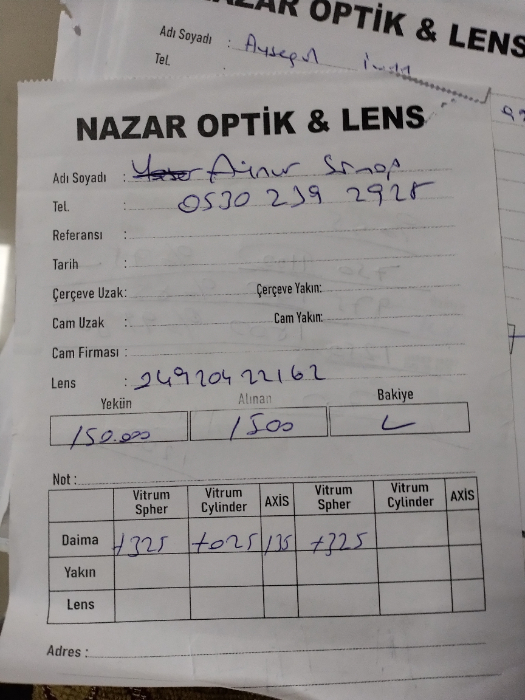 NAZAR OPTİK & LENS
Adı Soyadı : Ayşegül
Tel.
NAZAR OPTİK & LENS
Adı Soyadı : Ainur Sınap
Tel. : 0530 239 2928
Referansı :
Tarih :
Çerçeve Uzak: Çerçeve Yakın:
Cam Uzak : Cam Yakın:
Cam Firması :
Lens : 24920422162
Yekün Alınan Bakiye
150.000 1500
Not :
Vitrum Spher Vitrum Cylinder AXİS Vitrum Spher Vitrum Cylinder AXİS
Daima +325 +025 135 +325
Yakın
Lens
Adres :